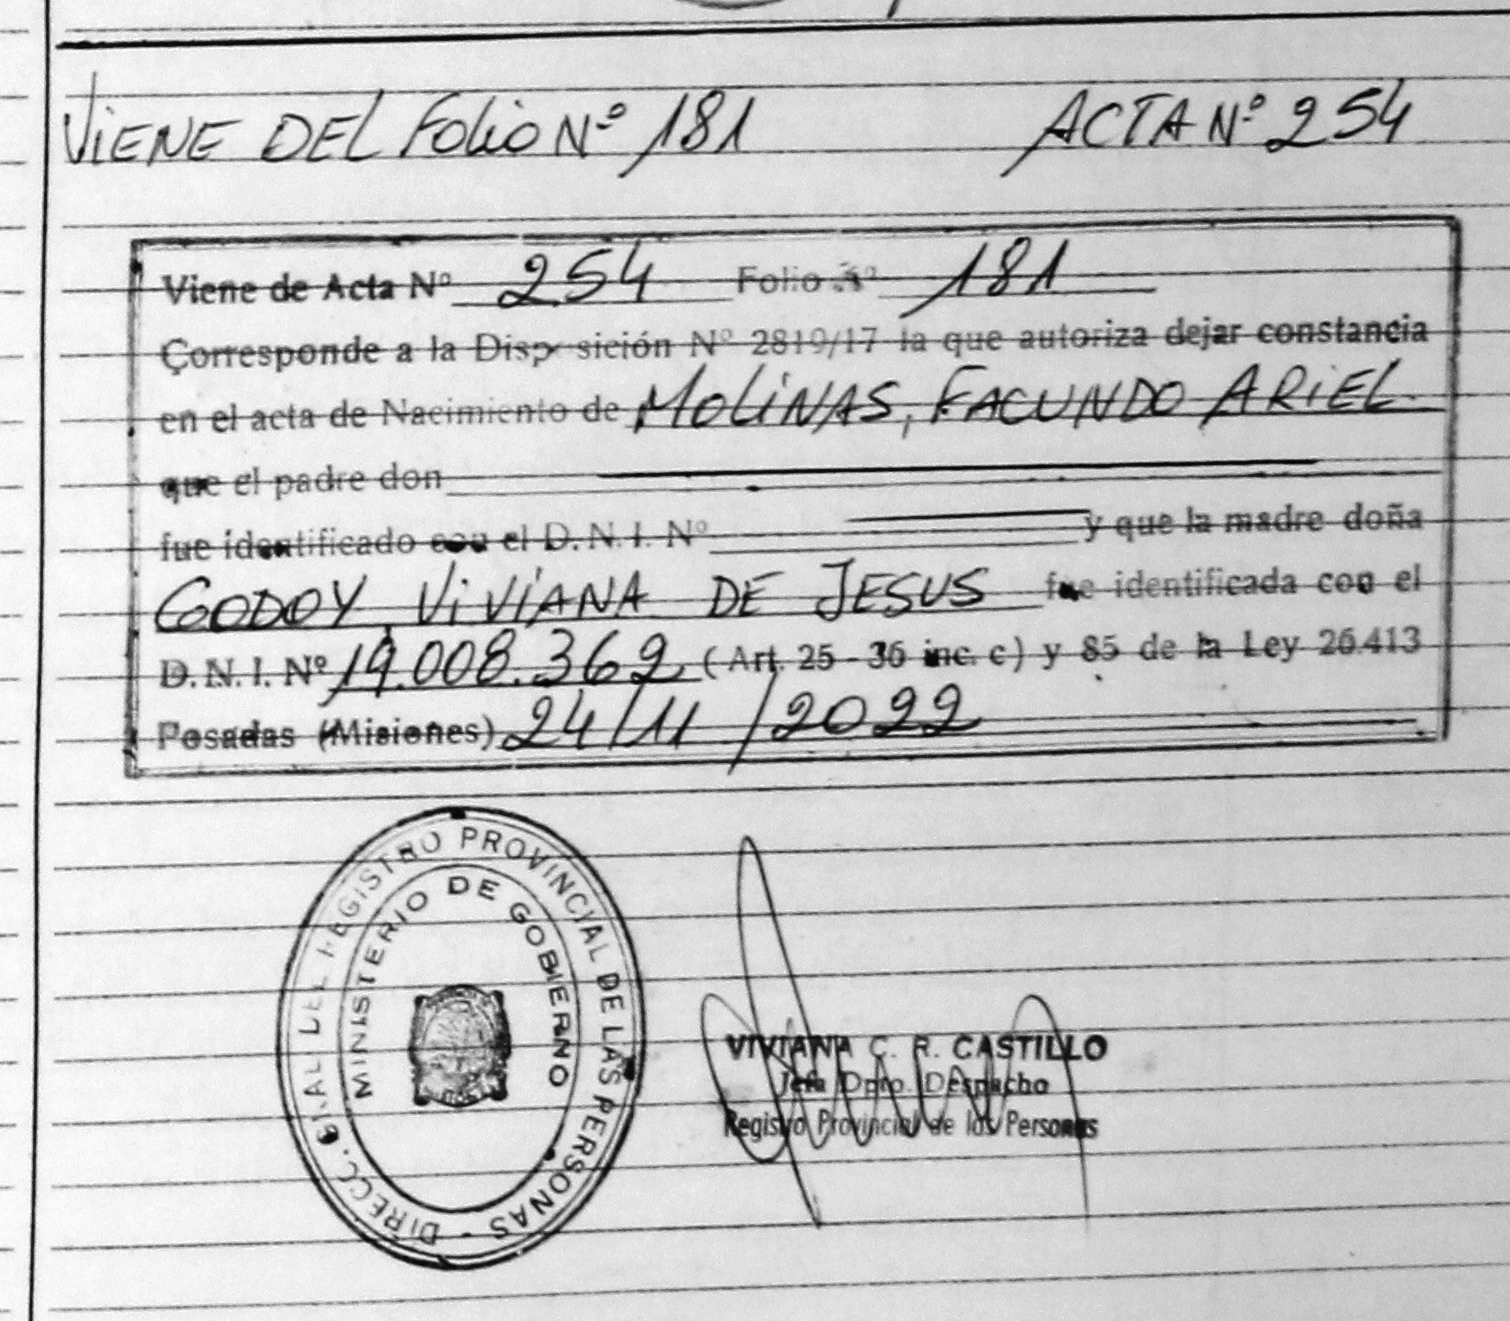 VIENE DEL FOLIO Nº 181 ACTA Nº 254
Viene de Acta Nº 254 Folio Nº 181
Corresponde a la Disposición Nº 2819/17 la que autoriza dejar constancia
en el acta de Nacimiento de MOLINAS, FACUNDO ARIEL
que el padre don
fue identificado con el D.N.I. Nº y que la madre doña
GODOY, VIVIANA DE JESUS fue identificada con el
D.N.I. Nº 19.008.369 (Art. 25 - 36 inc. c) y 85 de la Ley 26.413
Posadas (Misiones) 24/11/2022
DIRECC. GRAL DEL REGISTRO PROVINCIAL DE LAS PERSONAS -
MINISTERIO DE GOBIERNO
VIVIANA C. R. CASTILLO
Jefa Dpto. Despacho
Registro Provincial de las Personas